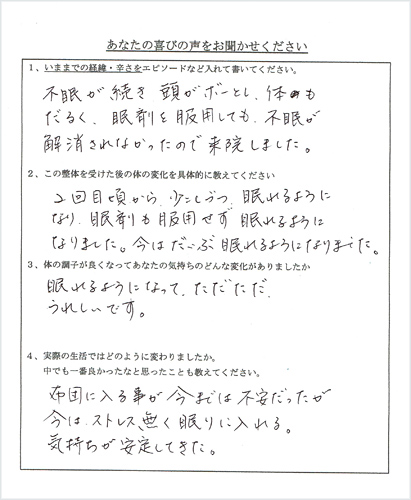 あなたの喜びの声をお聞かせください
1、いままでの経緯・辛さをエピソードなど入れて書いてください。
不眠が続き 頭がボーとし、体も
だるく、眠剤を服用しても、不眠が
解消されなかったので来院しました。
2、この整体を受けた後の体の変化を具体的に教えてください
2回目頃から、少しづつ、眠れるように
なり、眠剤も服用せず 眠れるように
なりました。今はだいぶ眠れるようになりました。
3、体の調子が良くなってあなたの気持ちのどんな変化がありましたか
眠れるようになって、ただただ、
うれしいです。
4、実際の生活ではどのように変わりましたか。
中でも一番良かったなと思ったことも教えてください。
布団に入る事が今までは不安だったが
今は、ストレス無く眠りに入れる。
気持ちが安定してきた。